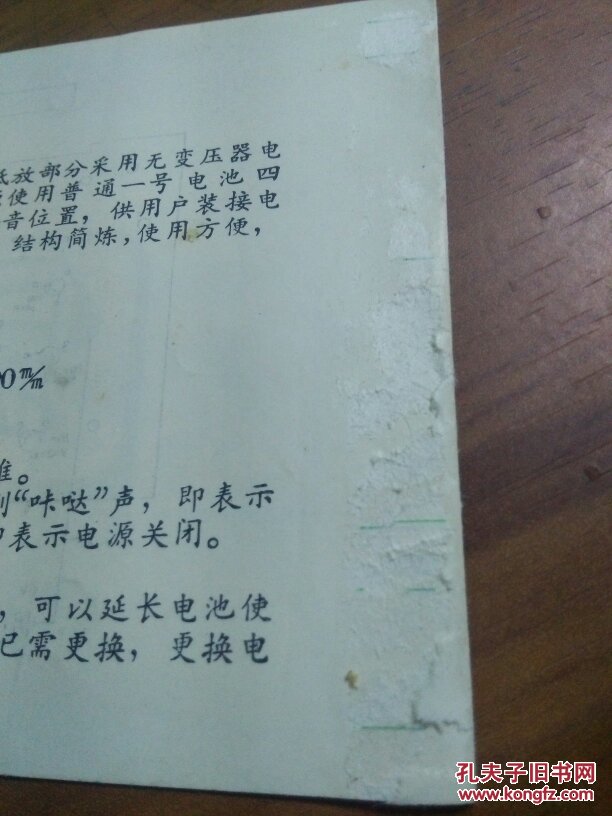 低放部分采用无变压器电
使用普通一号电池四
音位置，供用户装接电
结构简炼，使用方便，
00m/m
准。
到“咔哒”声，即表示
即表示电源关闭。
，可以延长电池使
已需更换，更换电
孔夫子旧书网
www.kongfz.com